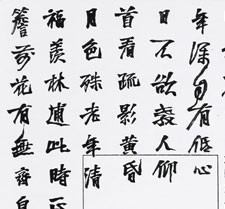 年深自有低心
日不欲教人仰
首看疏影黄昏
月色殊老年清
福羨林逋此時正
簷前花有無齊自